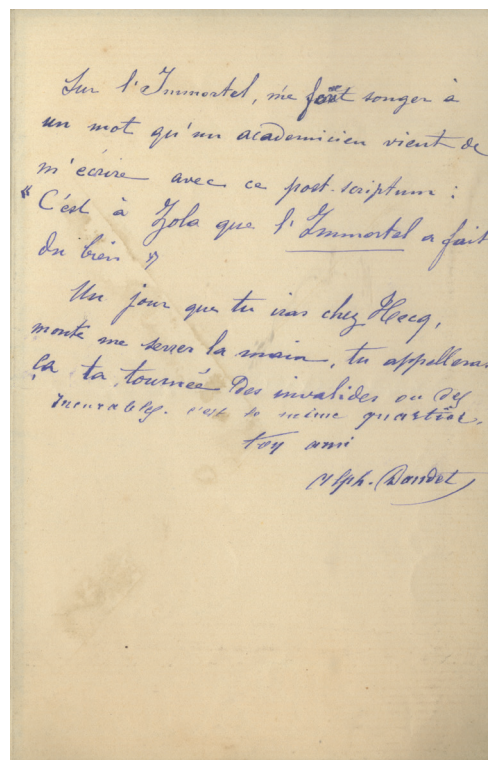 Sur l'Immortel, me font songer à
un mot qu'un academicien vient de
m'écrire avec ce post-scriptum :
"C'est à Zola que l'Immortel a fait
du bien"
Un jour que tu iras chez Hecq,
monte me serrer la main, tu appelleras
ça ta tournée des invalides ou des
Incurables. c'est le même quartier.
ton ami
Alph. Daudet